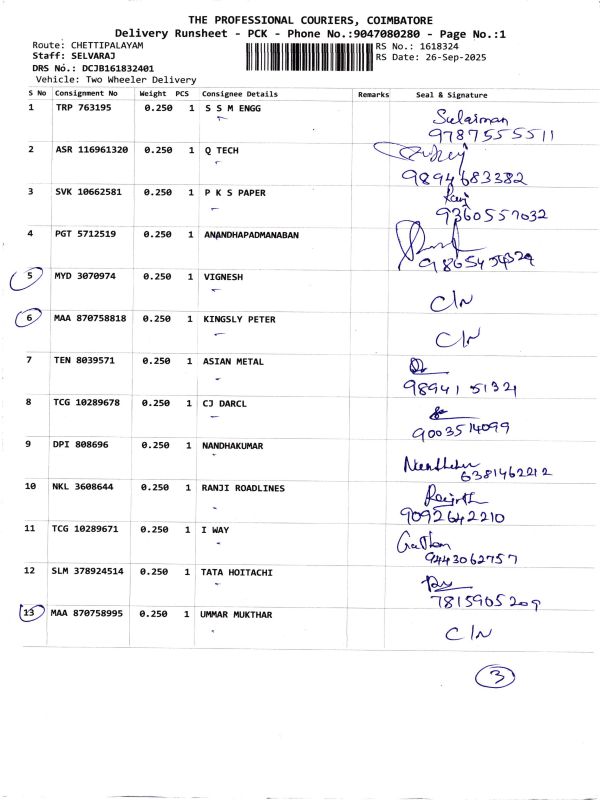 THE PROFESSIONAL COURIERS, COIMBATORE
Delivery Runsheet - PCK - Phone No.:9047080280 - Page No.:1
Route: CHETTIPALAYAM
RS No.: 1618324
Staff: SELVARAJ
RS Date: 26-Sep-2025
DRS No.: DCJB161832401
Vehicle: Two Wheeler Delivery
S No Consignment No Weight PCS Consignee Details Remarks Seal & Signature
1 TRP 763195 0.250 1 S S M ENGG Sulaiman
9787555511
2 ASR 116961320 0.250 1 Q TECH
9894683382
3 SVK 10662581 0.250 1 P K S PAPER Raj
9360557032
4 PGT 5712519 0.250 1 ANANDHAPADMANABAN
5 MYD 3070974 0.250 1 VIGNESH C/N
6 MAA 870758818 0.250 1 KINGSLY PETER C/N
7 TEN 8039571 0.250 1 ASIAN METAL
9894151321
8 TCG 10289678 0.250 1 CJ DARCL
9003514099
9 DPI 808696 0.250 1 NANDHAKUMAR
6381462212
10 NKL 3608644 0.250 1 RANJI ROADLINES
9092642210
11 TCG 10289671 0.250 1 I WAY
9443062757
12 SLM 378924514 0.250 1 TATA HOITACHI
7815905209
13 MAA 870758995 0.250 1 UMMAR MUKTHAR C/N
3